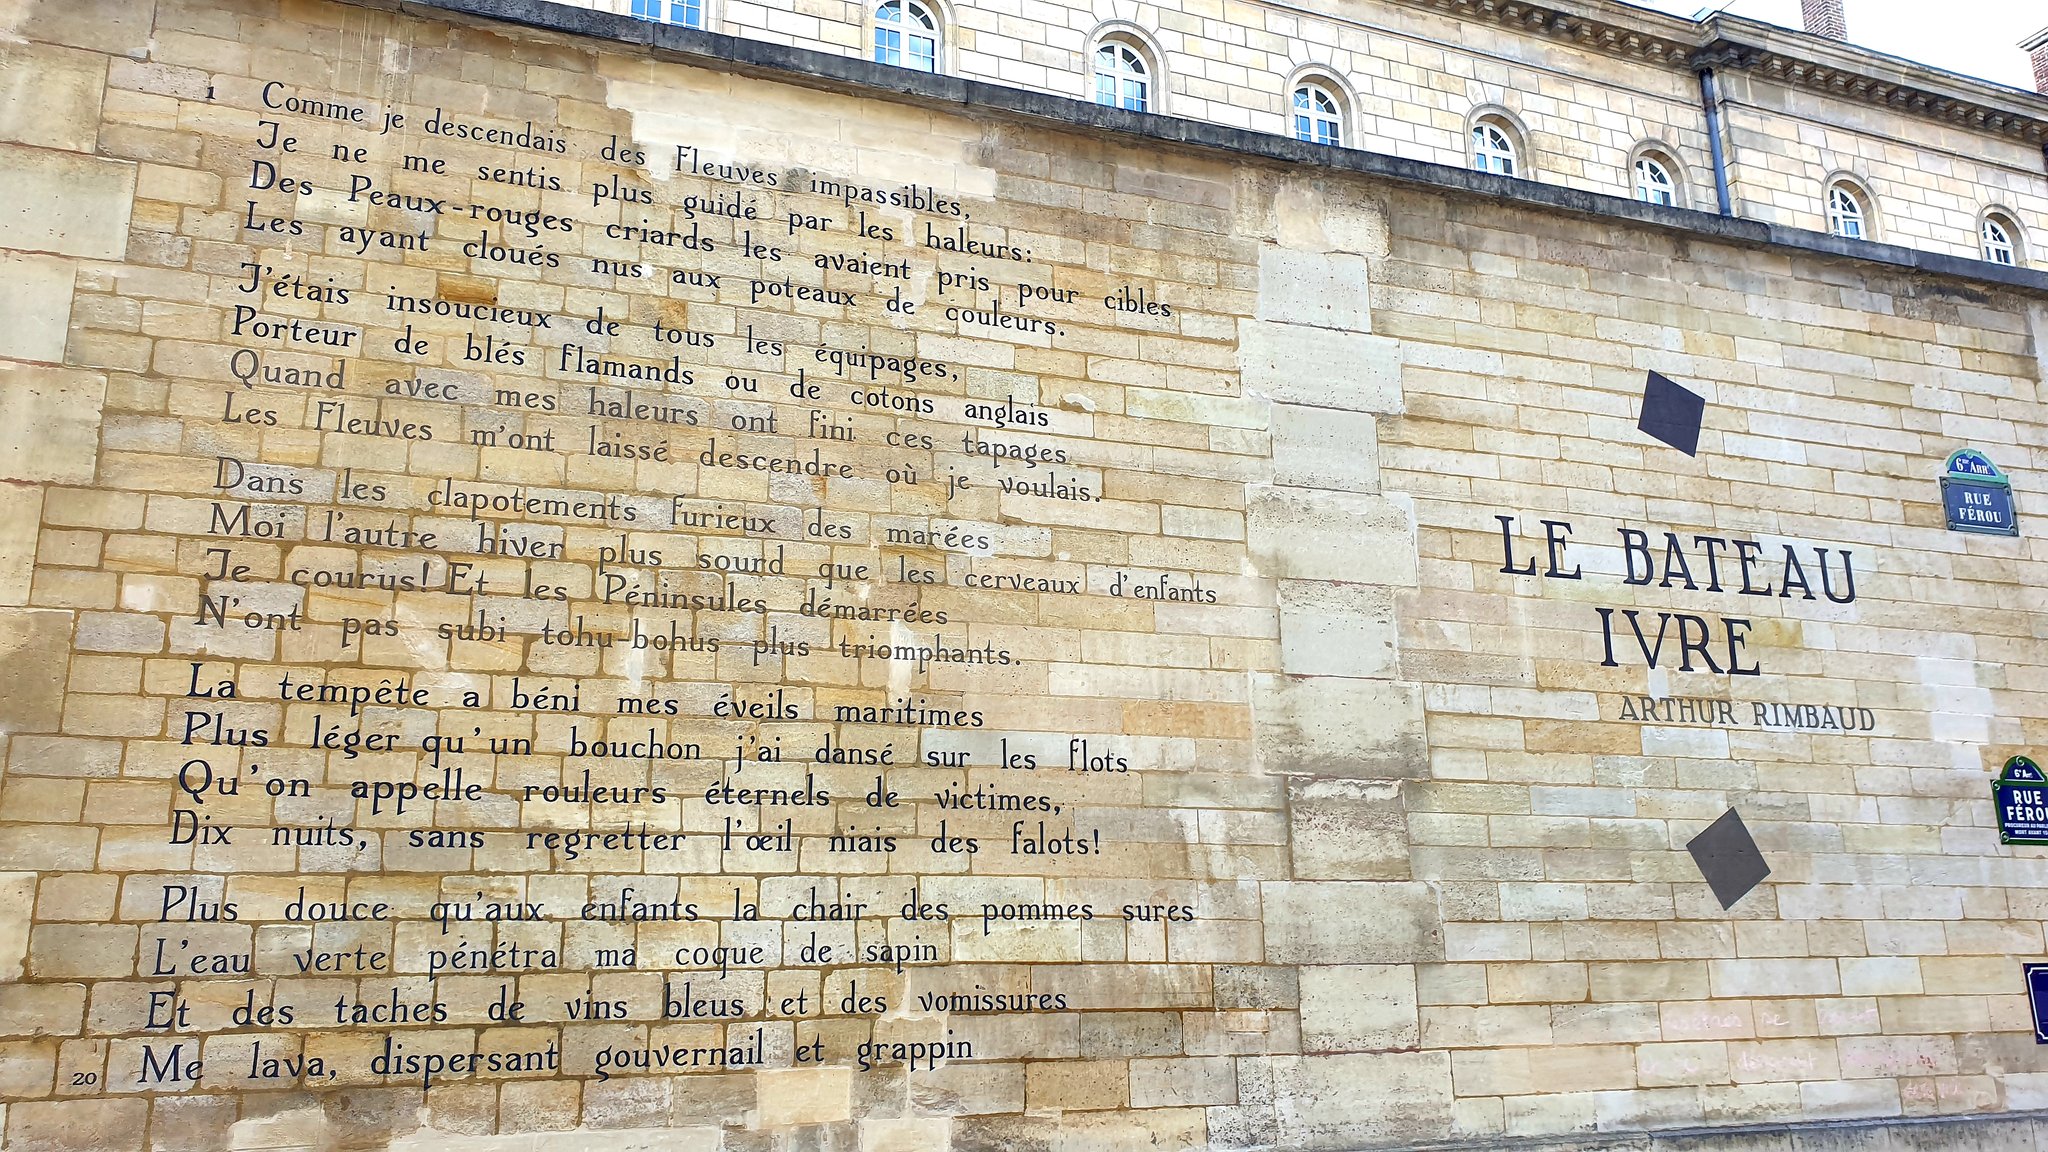 1 Comme je descendais des Fleuves impassibles,
Je ne me sentis plus guidé par les haleurs:
Des Peaux-rouges criards les avaient pris pour cibles
Les ayant cloués nus aux poteaux de couleurs.
J'étais insoucieux de tous les équipages,
Porteur de blés flamands ou de cotons anglais
Quand avec mes haleurs ont fini ces tapages
Les Fleuves m'ont laissé descendre où je voulais.
Dans les clapotements furieux des marées
Moi l'autre hiver plus sourd que les cerveaux d'enfants
Je courus! Et les Péninsules démarrées
N'ont pas subi tohu-bohus plus triomphants.
La tempête a béni mes éveils maritimes
Plus léger qu'un bouchon j'ai dansé sur les flots
Qu'on appelle rouleurs éternels de victimes,
Dix nuits, sans regretter l'œil niais des falots!
Plus douce qu'aux enfants la chair des pommes sures
L'eau verte pénétra ma coque de sapin
Et des taches de vins bleus et des vomissures
20 Me lava, dispersant gouvernail et grappin
LE BATEAU
IVRE
ARTHUR RIMBAUD
6me ARRt
RUE
FÉROU
6e Arr.
RUE
FÉROU
PROCUREUR AU
MORT AVANT